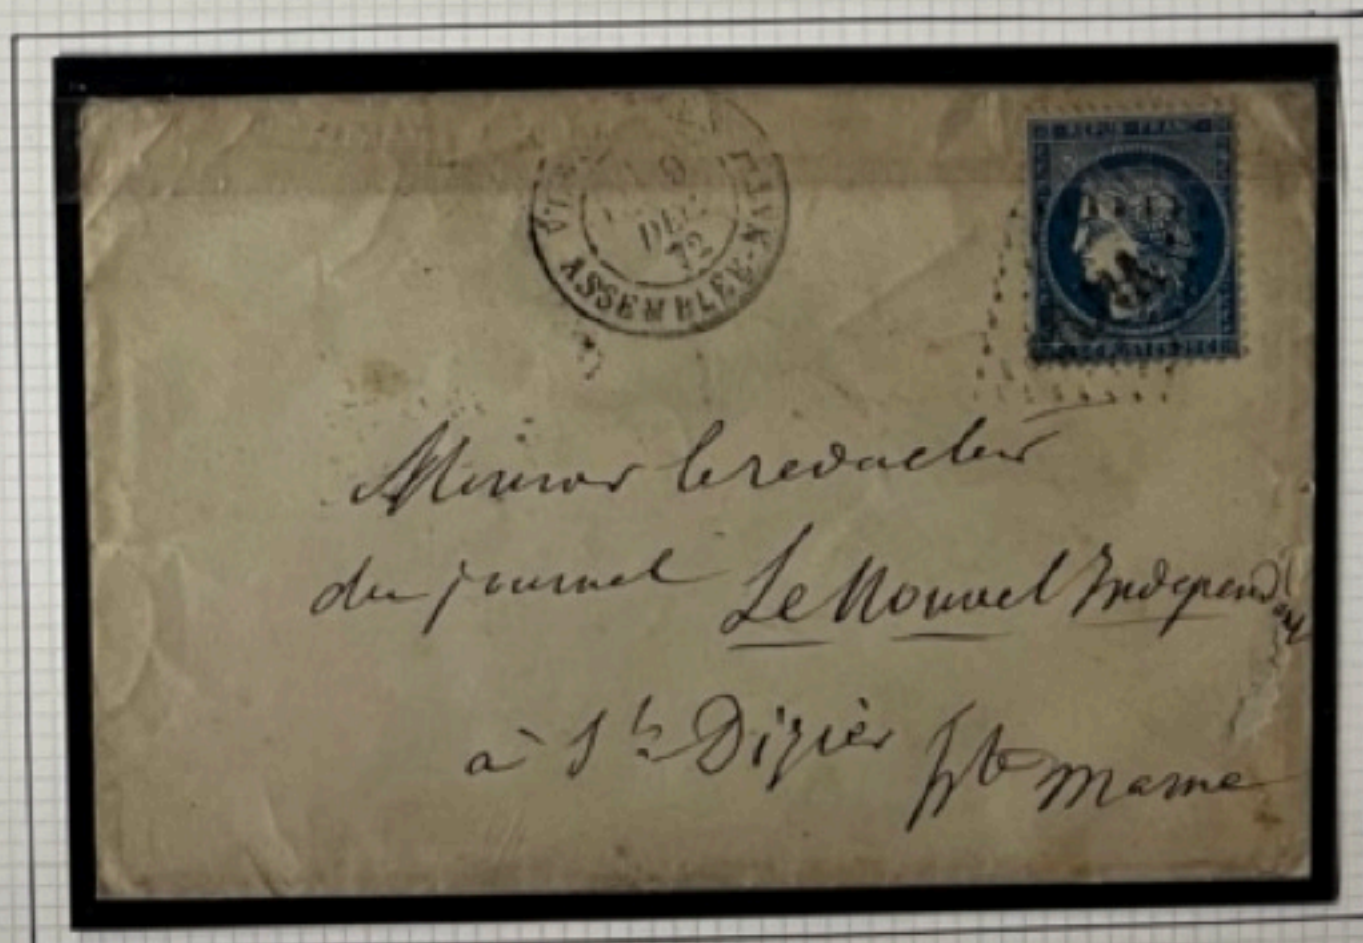 ASSEMBLÉE-NATLE
9
DEC
72
REPUB FRANC
POSTES
Monsieur le redacteur
du journal Le Nouvel Independant
à St Dizier Hte Marne